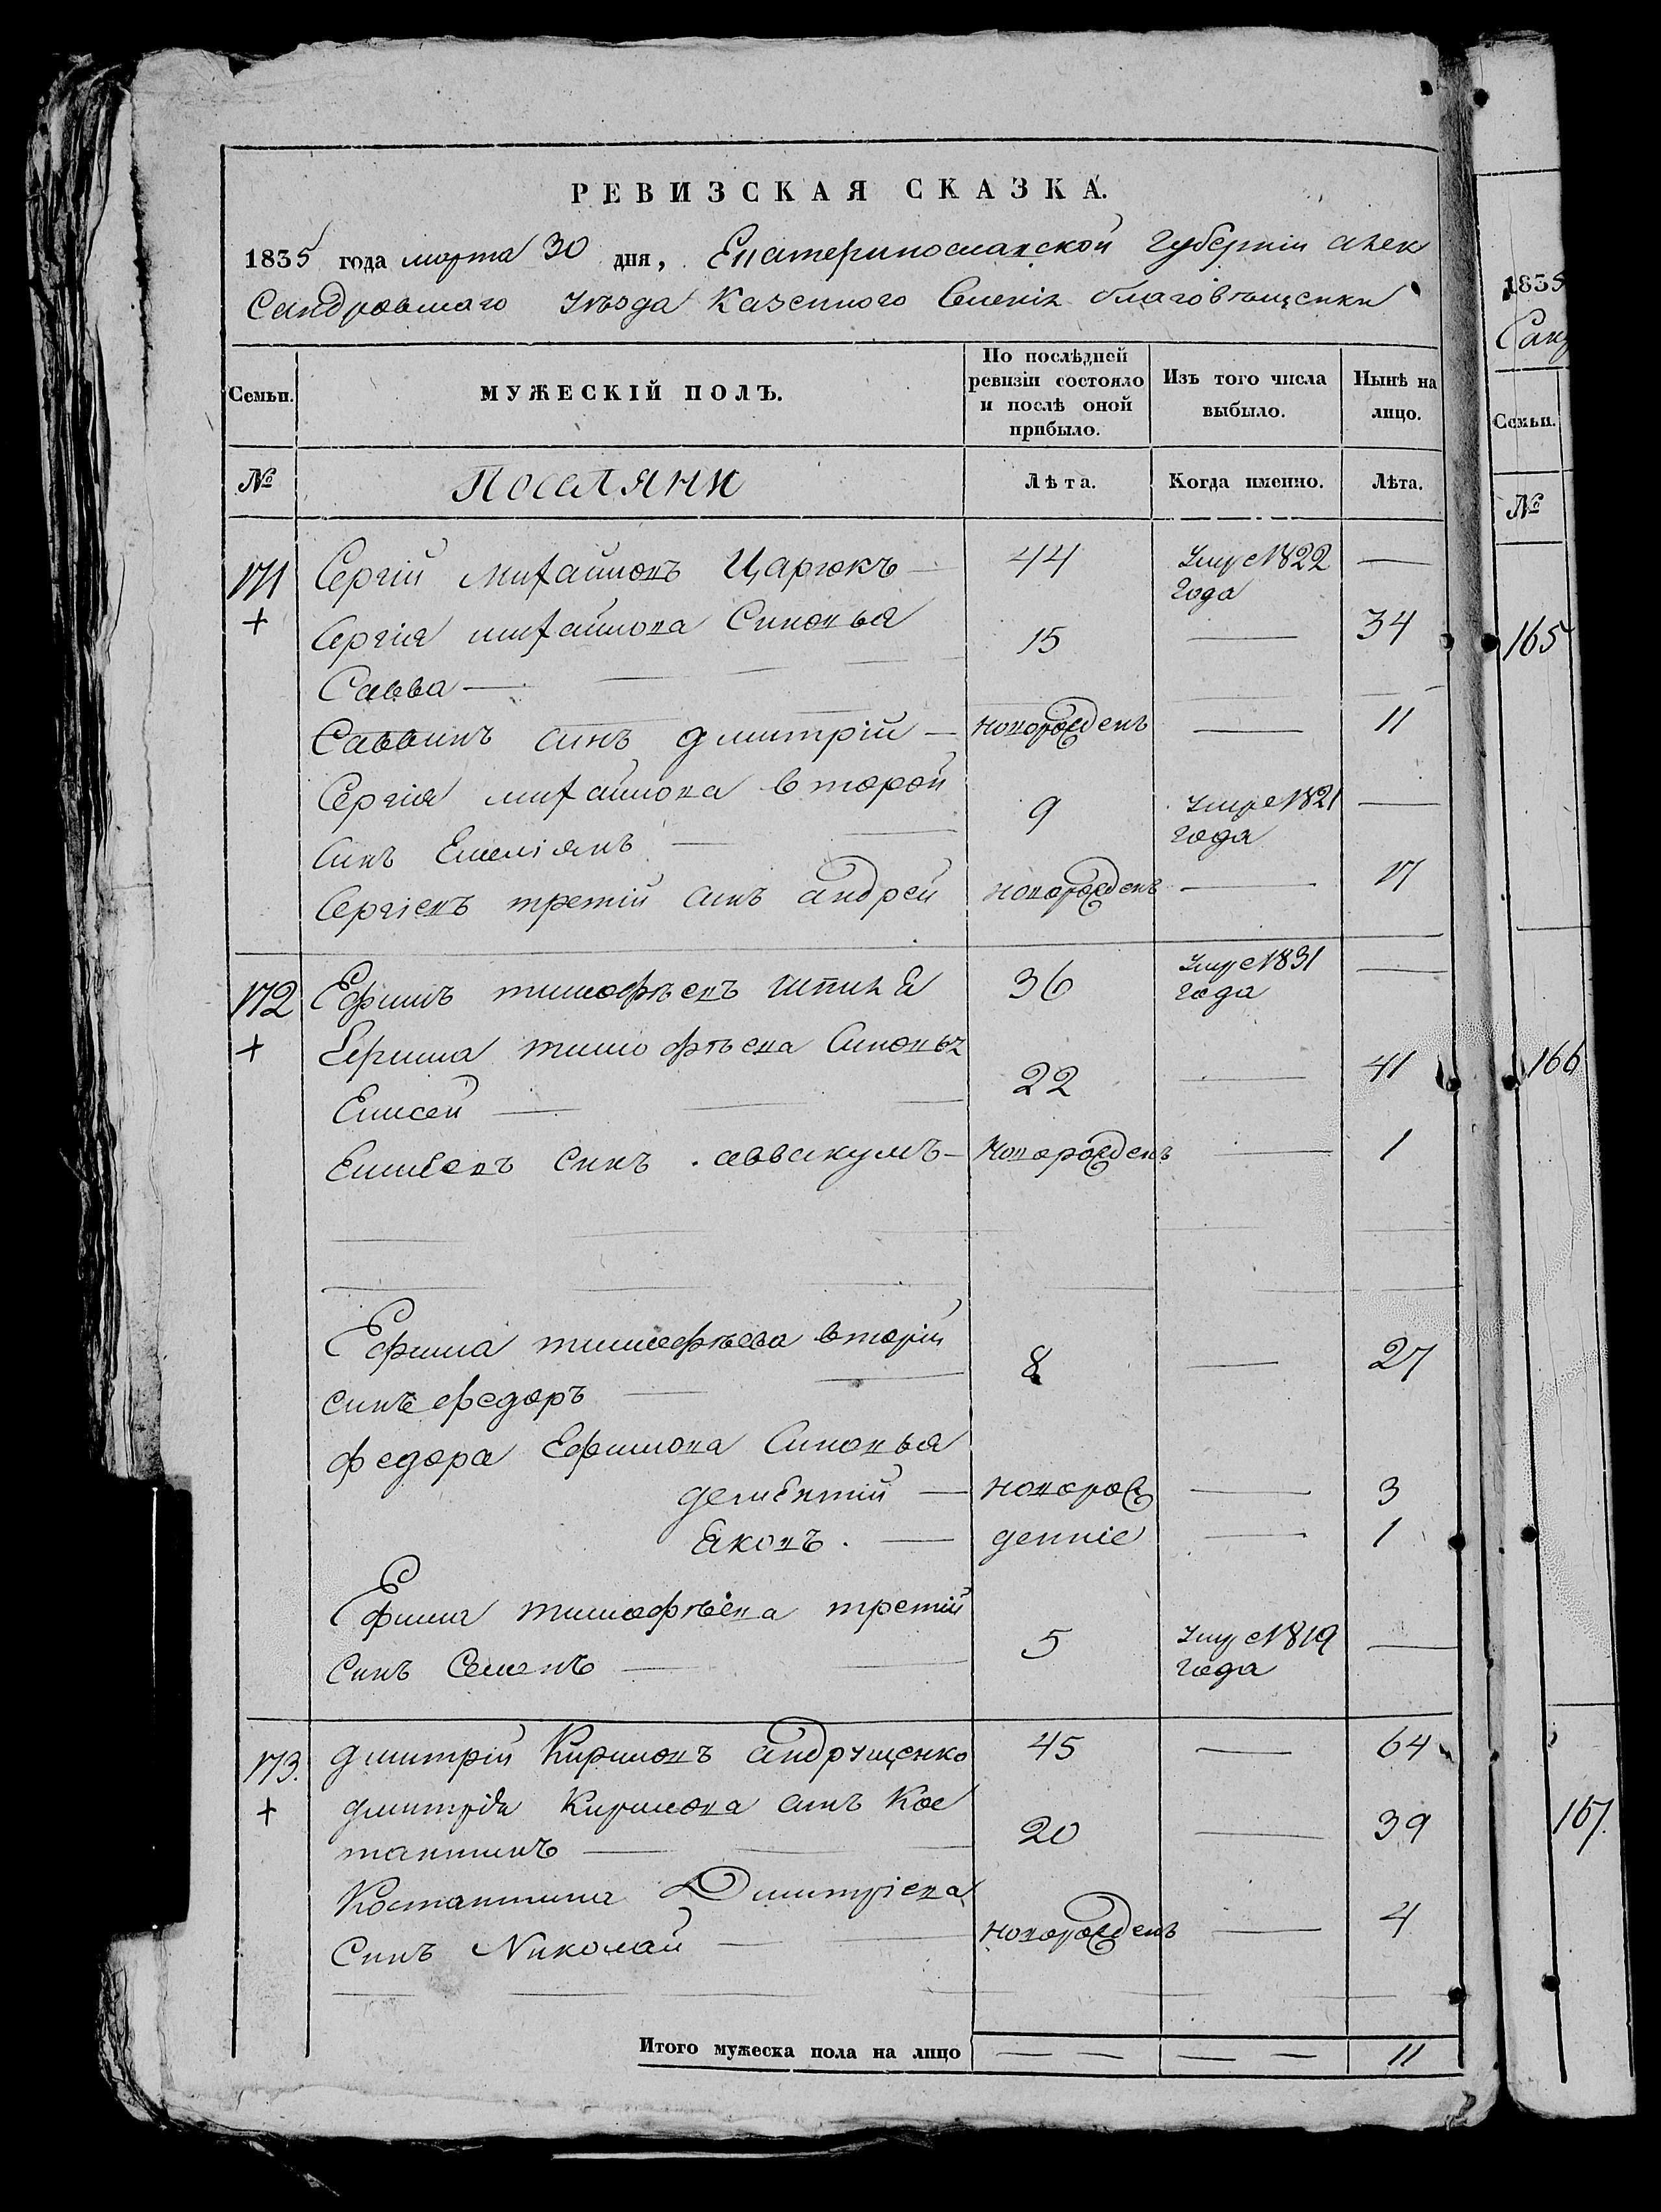 РЕВИЗСКАЯ СКАЗКА.
1835 года марта 30 дня, Екатеринославской губерніи алек
сандровскаго уѣзда казенного селенія благовѣщенки
Семьи. МУЖЕСКІЙ ПОЛЪ. По послѣдней ревизіи состояло и послѣ оной прибыло. Изъ того числа выбыло. Нынѣ на лицо.
№ Поселяни Лѣта. Когда именно. Лѣта.
171 Сергій михайловъ Царюкъ — 44 умре 1822 года —
+ Сергія михайлова Синовья
Савва — 15 — 34
Саввинъ синъ дмитрій — новорожденъ — 11
Сергія михайлова второй
синъ Емеліянъ — 9 умре 1821 года —
Сергіевъ третій синъ андрей новорожденъ — 17
172 Ефимъ тимофѣевъ 36 умре 1831 года —
+ Ефима тимофѣева Синовья
Елисей — 22 — 41
Елисеевъ синъ аввакумъ — новорожденъ — 1
Ефима тимофѣева вторій
синъ федоръ — 8 — 27
федора Ефимова Синовья
дементій — новорож — 3
Яковъ. — денніе — 1
Ефима тимофѣева третій
синъ Семенъ — 5 умре 1819 года —
173. дмитрій Кириловъ андрущенко 45 — 64
+ дмитрія Кирилова синъ Кос
тантинъ — 20 — 39
Костантина Дмитріева
Синъ Николай — новорожденъ — 4
Итого мужеска пола на лицо — — — — 11
1835
Сан
Семьи.
№
165
166
167.